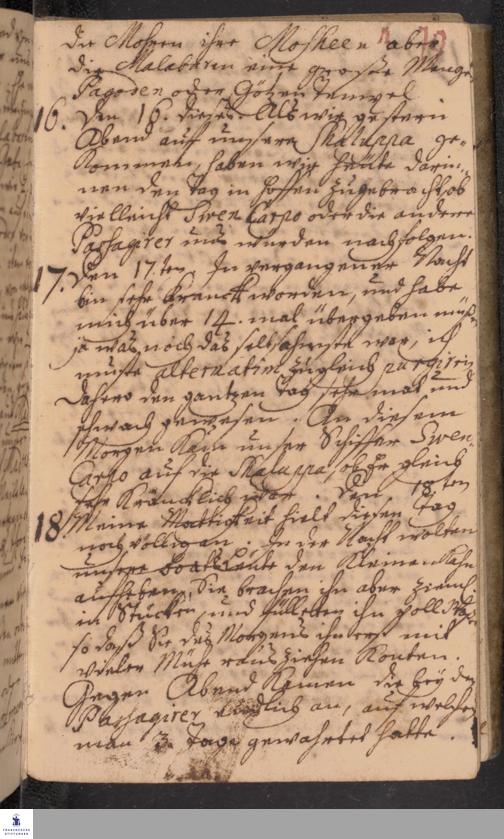 die Mohren ihre Moskeen aber
die Malabaren eine große Menge
Pagoden oder Götzen Tempel
16. Den 16. dieses. Als wir gestern
Abend auf unsere Skaluppa ge-
kommen, haben wir heute darin-
nen den Tag in hoffen zugebracht, ob
vielleicht Swen Carpo oder die andere
Passagirer uns würden nachfolgen.
17. Den 17.ten In vergangener Nacht
bin sehr kranck worden, und habe
mich über 14. mal übergeben müß
ja was noch das seltsahmste war, ich
muste alternatim zugleich purgiren
dahero den gantzen Tag sehr mat und
schwach gewesen. An diesem
Morgen kam unser Schiffer Swen
Carpo auf die Skaluppa, ob Er gleich
sehr kräncklich war. Den 18ten
18 Meine Mattigkeit hielt diesen Tag
noch völlig an. In der Nacht wolten
unsere bootsleute den kleinen Kahn
aufheben, Sie brachen ihn aber
in Stücken, und fülleten ihn voll
so daß Sie des Morgens ihn erst mit
vieler Mühe raus ziehen konten.
Gegen Abend kamen die
Passagirer endlich an, auf welche
man 3. Tage gewartet hatte.
FRANCKESCHE
STIFTUNGEN